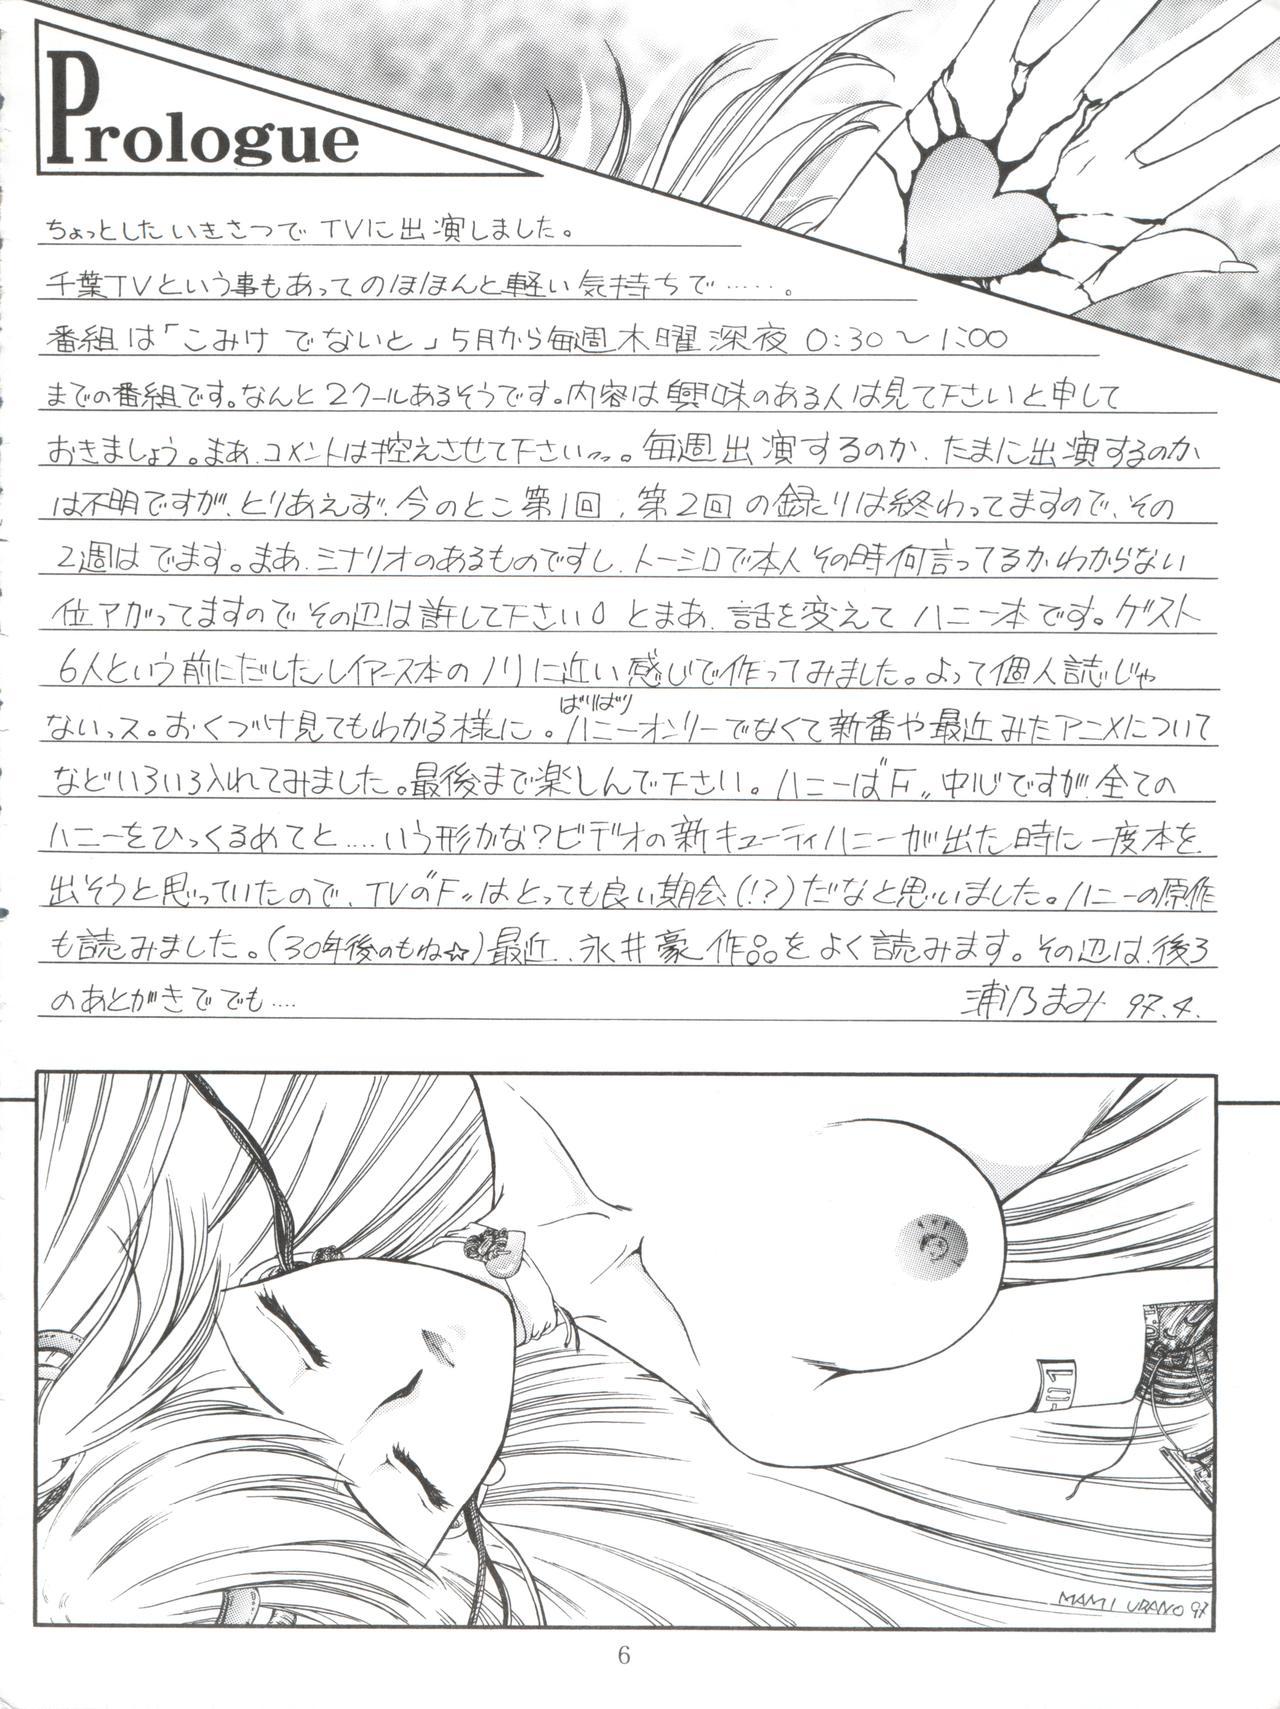 Prologue
ちょっとしたいきさつでTVに出演しました。
千葉TVという事もあってのほほんと軽い気持ちで……。
番組は「こみけでないと」5月から毎週木曜深夜0:30〜1:00
までの番組です。なんと2クールあるそうです。内容は興味のある人は見て下さいと申して
おきましょう。まあ、コメントは控えさせて下さいっっ。毎週出演するのか、たまに出演するのか
は不明ですが、とりあえず、今のとこ第1回、第2回の録りは終わってますので、その
2週はでます。まあ、ミナリオのあるものですし、トーシロで本人その時何言ってるかわからない
位アガってますのでその辺は許して下さい。とまあ、話を変えてハニー本です。ゲスト
6人という前にだしたレイアース本のノリに近い感じで作ってみました。よって個人誌じゃ
ないっス。おくづけ見てもわかる様に。ばりばりハニーオンリーでなくて新番や最近みたアニメについて
などいろいろ入れてみました。最後まで楽しんで下さい。ハニーは"F〟中心ですが、全ての
ハニーをひっくるめてと....いう形かな?ビデオの新キューティハニーが出た時に一度本を
出そうと思っていたので、TVの"F〟はとっても良い期会(!?)だなと思いました。ハニーの原作
も読みました。(30年後のもね☆)最近、永井豪作品をよく読みます。その辺は、後ろ
のあとがきででも....
浦乃まみ 97.4.
1:0
MAMI URANO 97
6